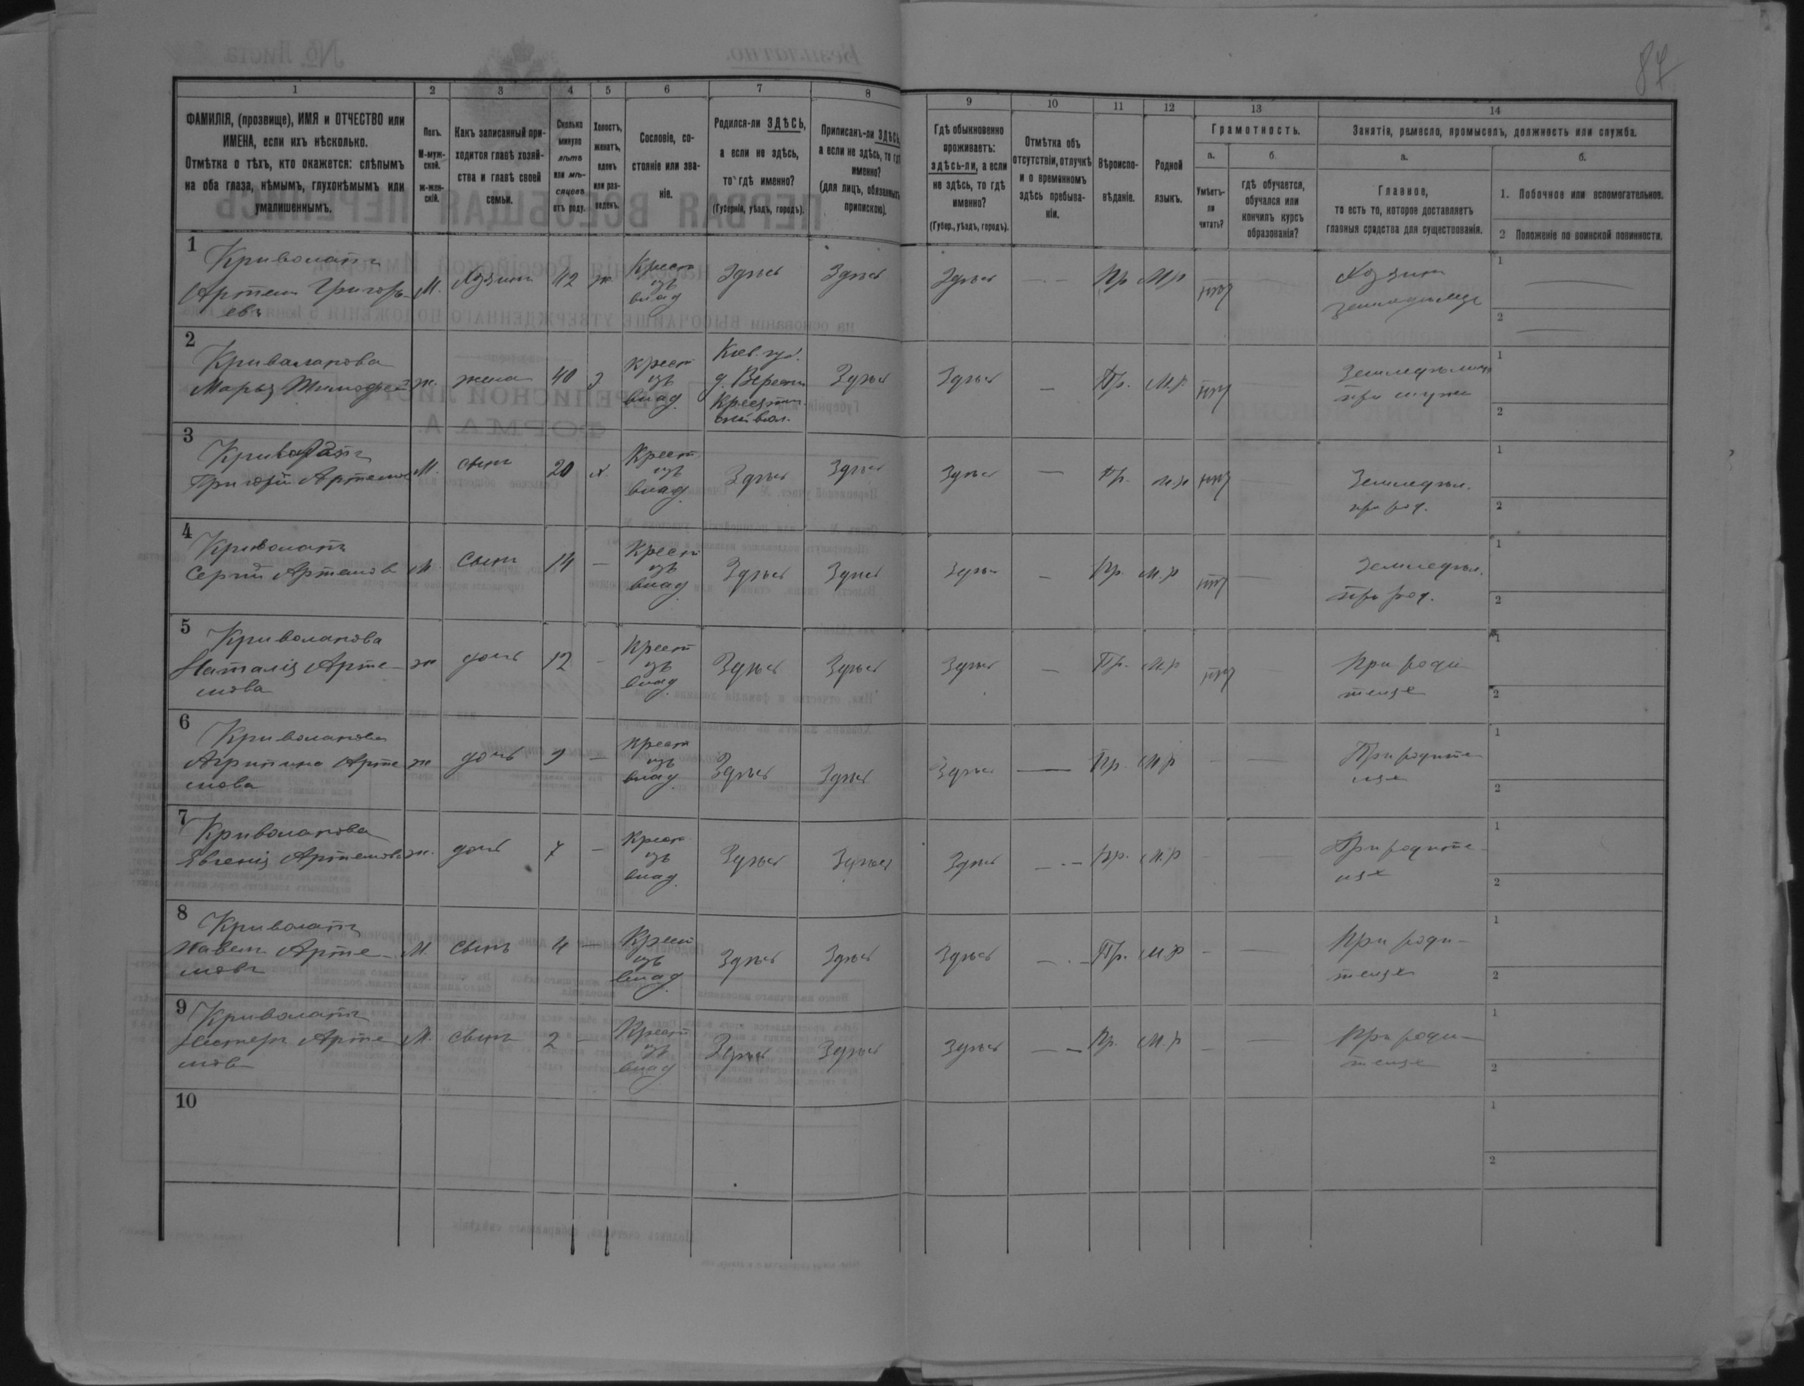 87
1 2 3 4 5 6 7 8 9 10 11 12 13 14
ФАМИЛІЯ, (прозвище), ИМЯ и ОТЧЕСТВО или
ИМЕНА, если ихъ нѣсколько.
Отмѣтка о тѣхъ, кто окажется: слѣпымъ
на оба глаза, нѣмымъ, глухонѣмымъ или
умалишеннымъ.
Полъ.
М-муж-
ской.
ж-жен-
скій.
Какъ записанный при-
ходится главѣ хозяй-
ства и главѣ своей
семьи.
Сколько
минуло
лѣтъ
или мѣ-
сяцевъ
отъ роду.
Холостъ,
женатъ,
вдовъ
или раз-
веденъ.
Сословіе, со-
стояніе или зва-
ніе.
Родился-ли ЗДѢСЬ,
а если не здѣсь,
то гдѣ именно?
(Губернія, уѣздъ, городъ).
Приписанъ-ли ЗДѢСЬ,
а если не здѣсь, то гдѣ
именно?
(для лицъ, обязанныхъ
припискою).
Гдѣ обыкновенно
проживаетъ:
здѣсь-ли, а если
не здѣсь, то гдѣ
именно?
(Губер., уѣздъ, городъ).
Отмѣтка объ
отсутствіи, отлучкѣ
и о временномъ
здѣсь пребыва-
ніи.
Вѣроиспо-
вѣданіе.
Родной
языкъ.
Грамотность.
а.
Умѣетъ-
ли
читать?
б.
гдѣ обучается,
обучался или
кончилъ курсъ
образованія?
Занятія, ремесло, промыселъ, должность или служба.
а.
Главное,
то есть то, которое доставляетъ
главныя средства для существованія.
б.
1. Побочное или вспомогательное.
2 Положеніе по воинской повинности.
1
Криволапъ
Артемъ Григорь-
евъ
М. Хозяинъ 42 ж
Крест
изъ
влад
Здѣсь Здѣсь Здѣсь — Пр М.р нѣт —
Хозяинъ
земледѣлец
1
2
2
Криволапова
Марья Тимофее
ж. жена 40 з
Крест
изъ
влад.
Киев. губ.
Здѣсь Здѣсь — Пр. М.р нѣт
Земледѣліе
при мужѣ
1
2
3
Криволапъ
Григорій Артемов
М. сынъ 20 х.
Крест
изъ
влад.
Здѣсь Здѣсь Здѣсь — Пр. м.р нѣт —
Земледѣл.
при род.
1
2
4
Криволапъ
Сергій Артемов
М сынъ 14 —
Крест
изъ
влад.
Здѣсь Здѣсь Здѣсь — Пр. М.р нѣт —
Земледѣл.
при род.
1
2
5
Криволапова
Наталія Арте-
мова
ж дочь 12 —
Крест
изъ
влад.
Здѣсь Здѣсь Здѣсь — Пр. М.р нѣт —
При роди-
теляхъ
1
2
6
Криволапова
Агрипина Арте
мова
ж дочь 9 —
Крест
изъ
влад.
Здѣсь Здѣсь Здѣсь — Пр. М.р - —
При родите
ляхъ
1
2
7
Криволапова
Евгенія Артемова
ж. дочь 7 —
Крест
изъ
влад.
Здѣсь Здѣсь Здѣсь — Пр. М.р - —
При родите-
ляхъ
1
2
8
Криволапъ
Павелъ Арте-
мовъ
М. сынъ 4 —
Крест
изъ
влад.
Здѣсь Здѣсь Здѣсь — Пр. М.р - —
При роди-
теляхъ
1
2
9
Криволапъ
Нестеръ Арте
мовъ
М. сынъ 2 —
Крест
изъ
влад
Здѣсь Здѣсь Здѣсь — Пр. М.р - —
При роди-
теляхъ
1
2
10
1
2